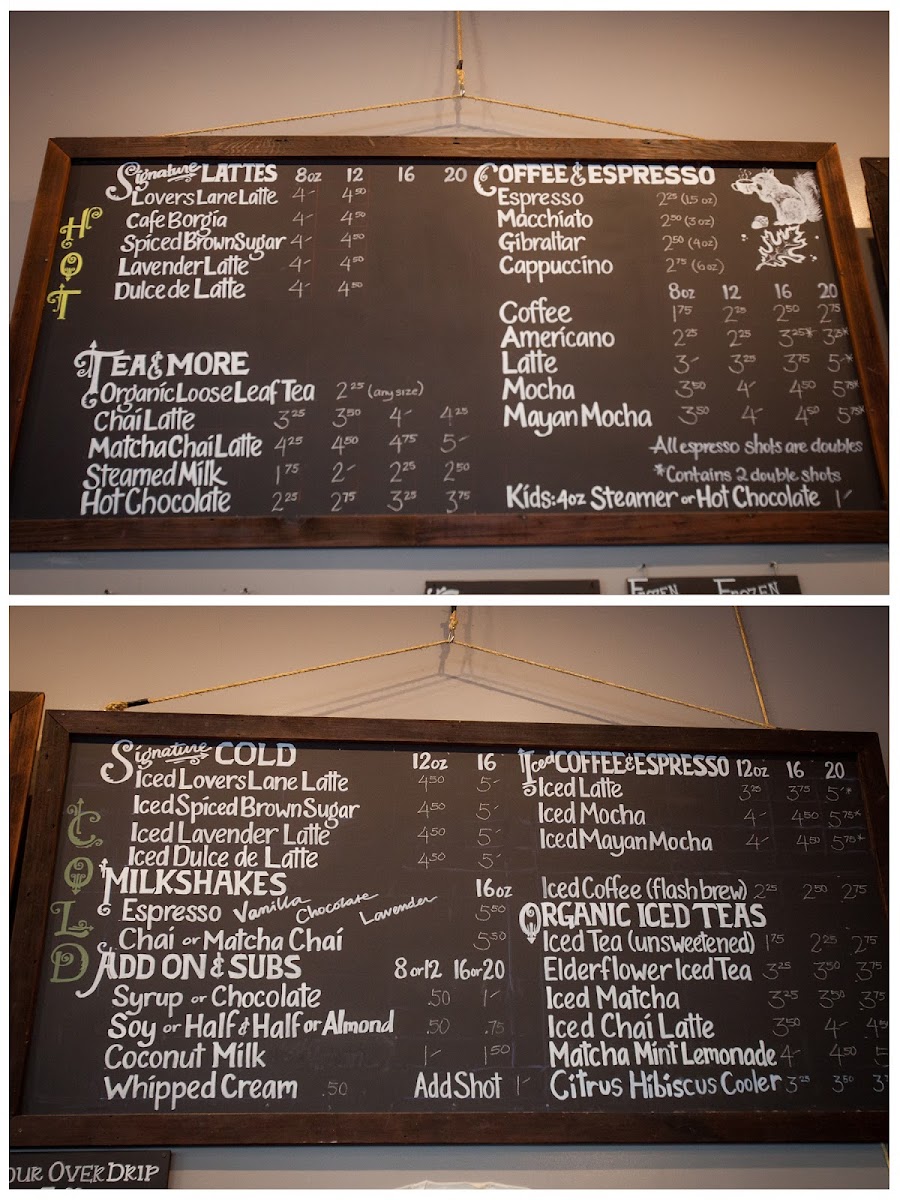 HOT
Signature LATTES 8oz 12 16 20
Lovers Lane Latte 4- 4.50
Cafe Borgia 4- 4.50
Spiced Brown Sugar 4- 4.50
Lavender Latte 4- 4.50
Dulce de Latte 4- 4.50
TEA & MORE
Organic Loose Leaf Tea 2.25 (any size)
Chai Latte 3.25 3.50 4- 4.25
Matcha Chai Latte 4.25 4.50 4.75 5-
Steamed Milk 1.75 2- 2.25 2.50
Hot Chocolate 2.25 2.75 3.25 3.75
COFFEE & ESPRESSO
Espresso 2.25 (1.5 oz)
Macchiato 2.50 (3 oz)
Gibraltar 2.50 (4oz)
Cappuccino 2.75 (6oz)
8oz 12 16 20
Coffee 1.75 2.25 2.50 2.75
Americano 2.25 2.25 3.25* 3.75*
Latte 3- 3.25 3.75 5-*
Mocha 3.50 4- 4.50 5.75*
Mayan Mocha 3.50 4- 4.50 5.75*
All espresso shots are doubles
*Contains 2 double shots
Kids: 4oz Steamer or Hot Chocolate 1-
FROZEN FROZEN
COLD
Signature COLD 12oz 16
Iced Lovers Lane Latte 4.50 5-
Iced Spiced Brown Sugar 4.50 5-
Iced Lavender Latte 4.50 5-
Iced Dulce de Latte 4.50 5-
MILKSHAKES 16oz
Espresso Vanilla Chocolate Lavender 5.50
Chai or Matcha Chai 5.50
ADD ON & SUBS 8 or 12 16 or 20
Syrup or Chocolate .50 1-
Soy or Half & Half or Almond .50 .75
Coconut Milk 1- 1.50
Whipped Cream .50 Add Shot 1-
Iced COFFEE & ESPRESSO 12oz 16 20
Iced Latte 3.25 3.75 5-*
Iced Mocha 4- 4.50 5.75*
Iced Mayan Mocha 4- 4.50 5.75*
Iced Coffee (flash brew) 2.25 2.50 2.75
ORGANIC ICED TEAS
Iced Tea (unsweetened) 1.75 2.25 2.75
Elderflower Iced Tea 3.25 3.50 3.75
Iced Matcha 3.25 3.50 3.75
Iced Chai Latte 3.50 4- 4.50
Matcha Mint Lemonade 4- 4.50 5
Citrus Hibiscus Cooler 3.25 3.50 3
OUR OVER DRIP